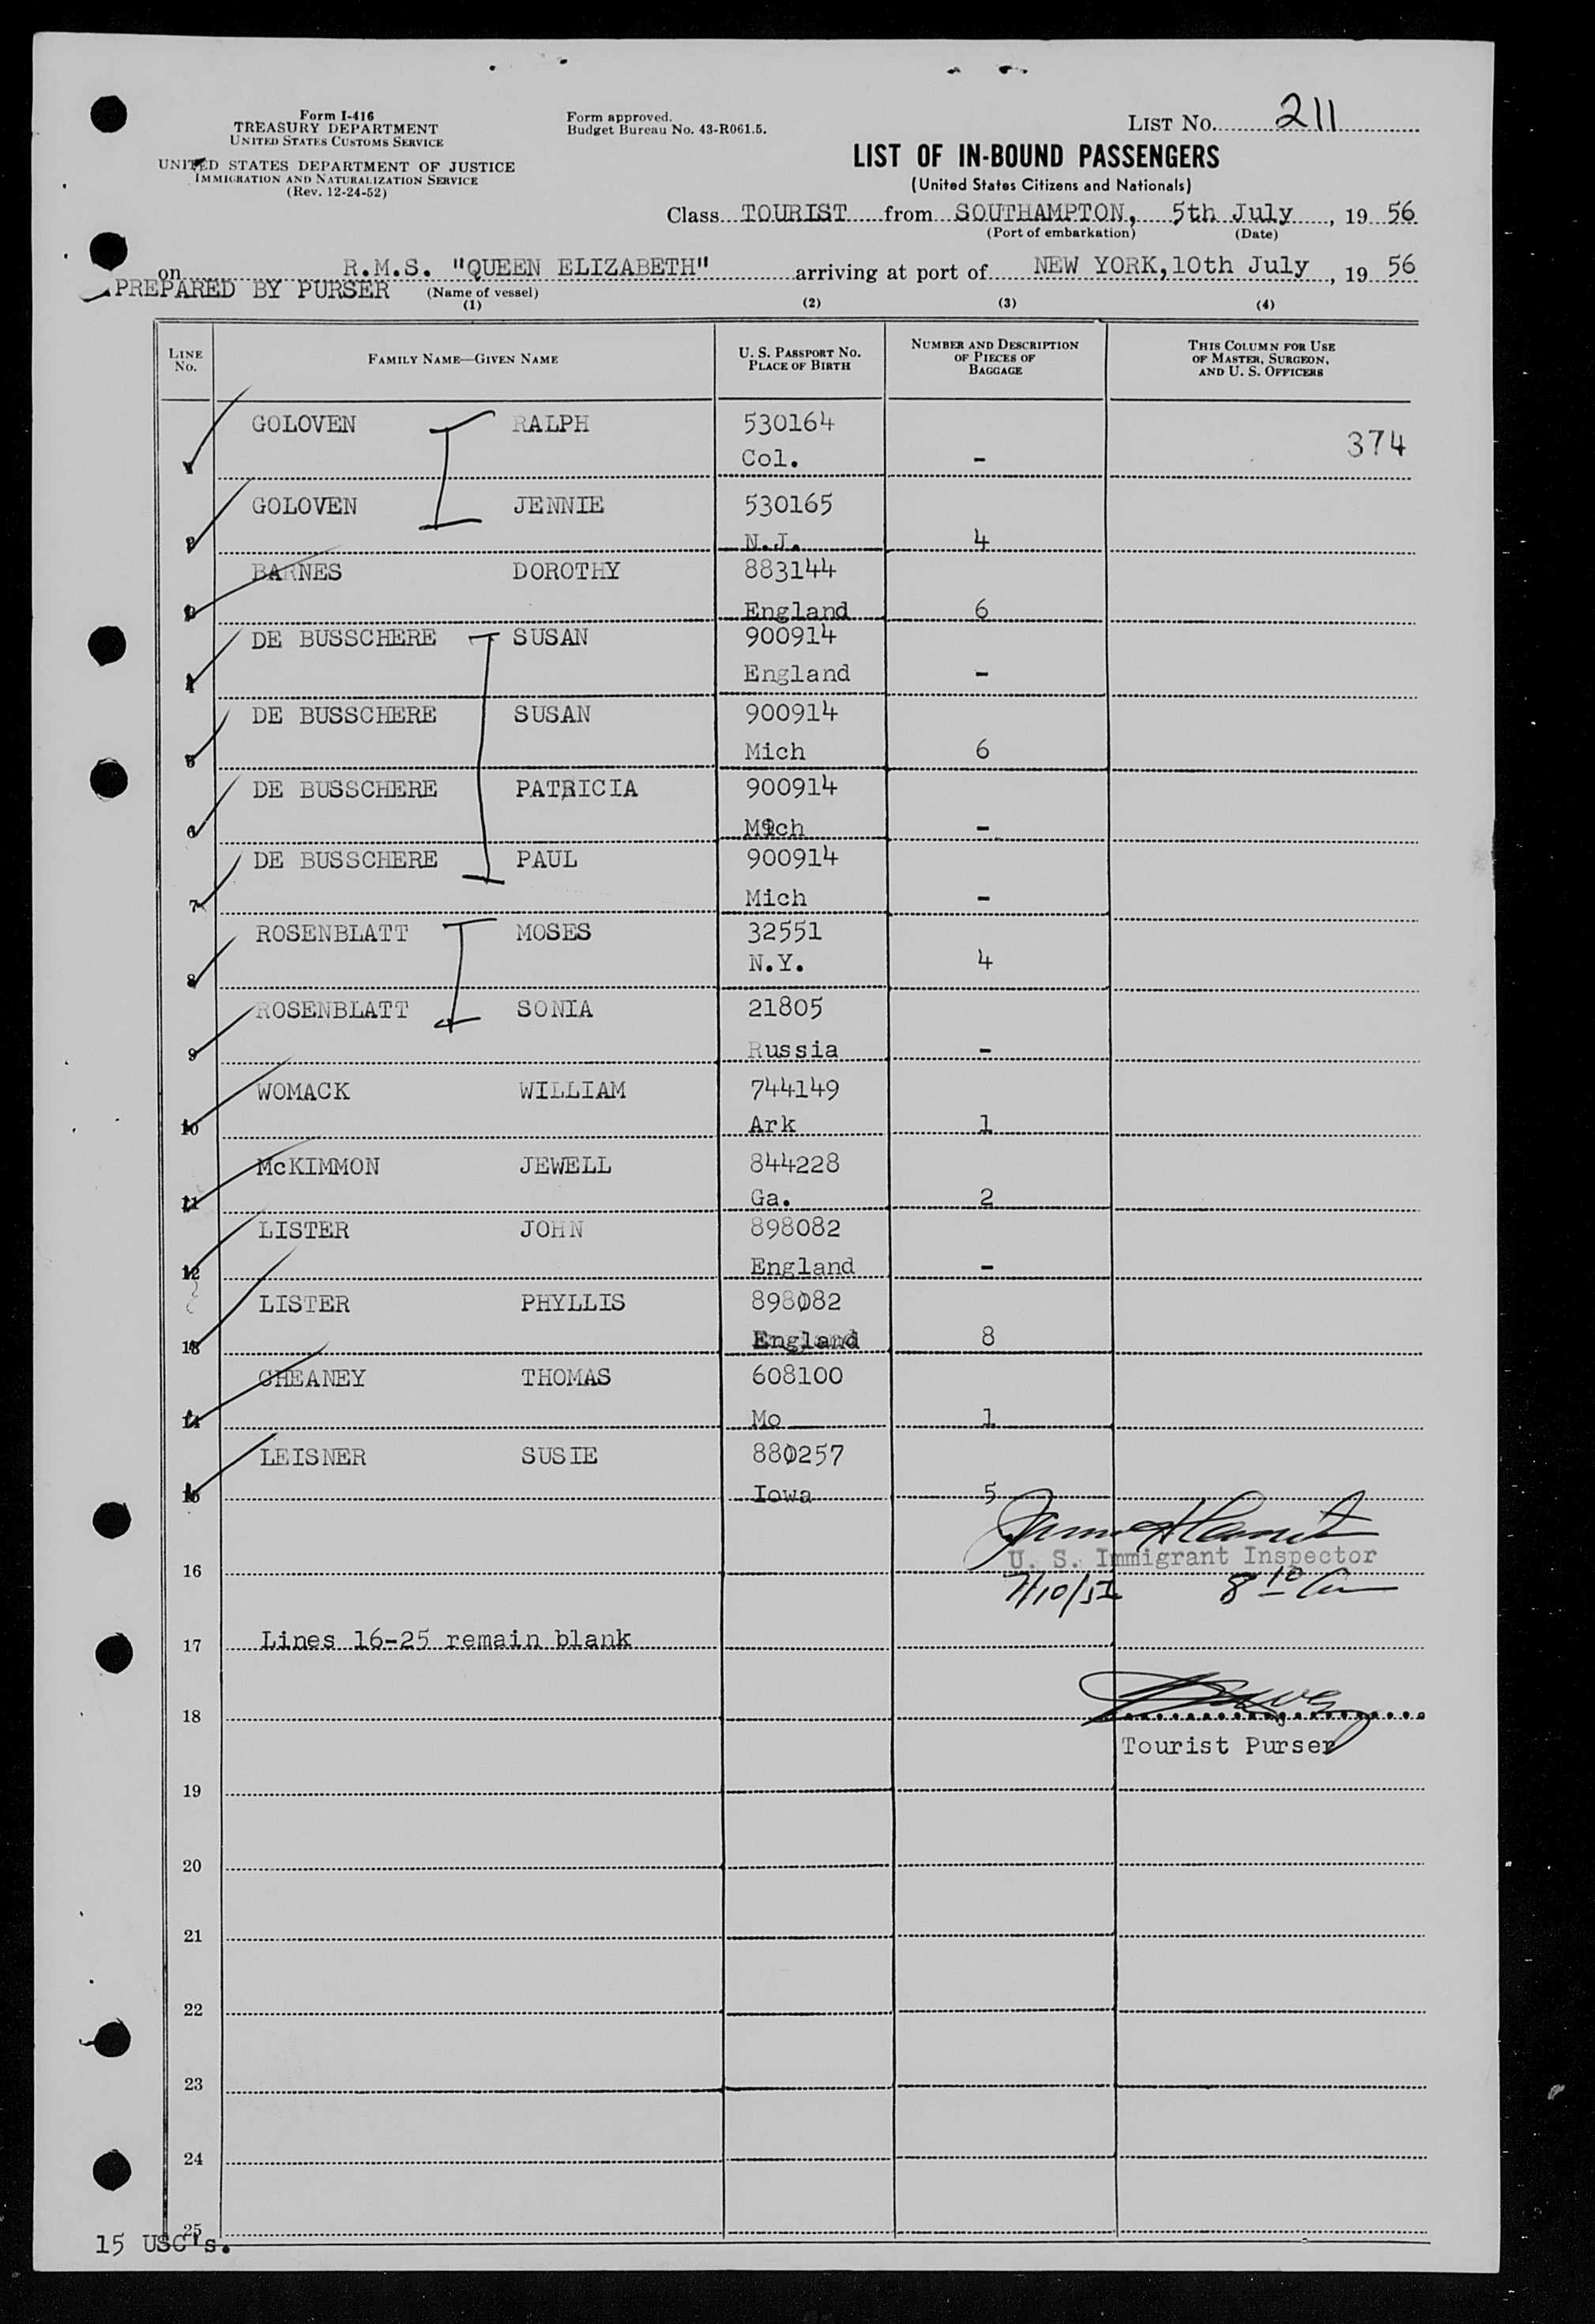 Form I-416
TREASURY DEPARTMENT
UNITED STATES CUSTOMS SERVICE
UNITED STATES DEPARTMENT OF JUSTICE
IMMIGRATION AND NATURALIZATION SERVICE
(Rev. 12-24-52)
Form approved.
Budget Bureau No. 43-R061.5.
LIST NO. 211
LIST OF IN-BOUND PASSENGERS
(United States Citizens and Nationals)
Class TOURIST from SOUTHAMPTON, 5th July, 19 56
(Port of embarkation) (Date)
on R.M.S. "QUEEN ELIZABETH" arriving at port of NEW YORK, 10th July, 19 56
PREPARED BY PURSER (Name of vessel)
(1) (2) (3) (4)
LINE NO. FAMILY NAME—GIVEN NAME U. S. PASSPORT NO. PLACE OF BIRTH NUMBER AND DESCRIPTION OF PIECES OF BAGGAGE THIS COLUMN FOR USE OF MASTER, SURGEON, AND U. S. OFFICERS
GOLOVEN RALPH 530164
374
1 Col. -
GOLOVEN JENNIE 530165
2 N.J. 4
BARNES DOROTHY 883144
3 England 6
DE BUSSCHERE SUSAN 900914
4 England -
DE BUSSCHERE SUSAN 900914
5 Mich 6
DE BUSSCHERE PATRICIA 900914
6 Mich -
DE BUSSCHERE PAUL 900914
7 Mich -
ROSENBLATT MOSES 32551
8 N.Y. 4
ROSENBLATT SONIA 21805
9 Russia -
WOMACK WILLIAM 744149
10 Ark 1
McKIMMON JEWELL 844228
11 Ga. 2
LISTER JOHN 898082
12 England -
LISTER PHYLLIS 898082
13 England 8
CHEANEY THOMAS 608100
14 Mo 1
LEISNER SUSIE 880257
15 Iowa 5
U. S. Immigrant Inspector
16
7/10/56 8 10 am
17 Lines 16-25 remain blank
18
Tourist Purser
19
20
21
22
23
24
25
15 USC's.